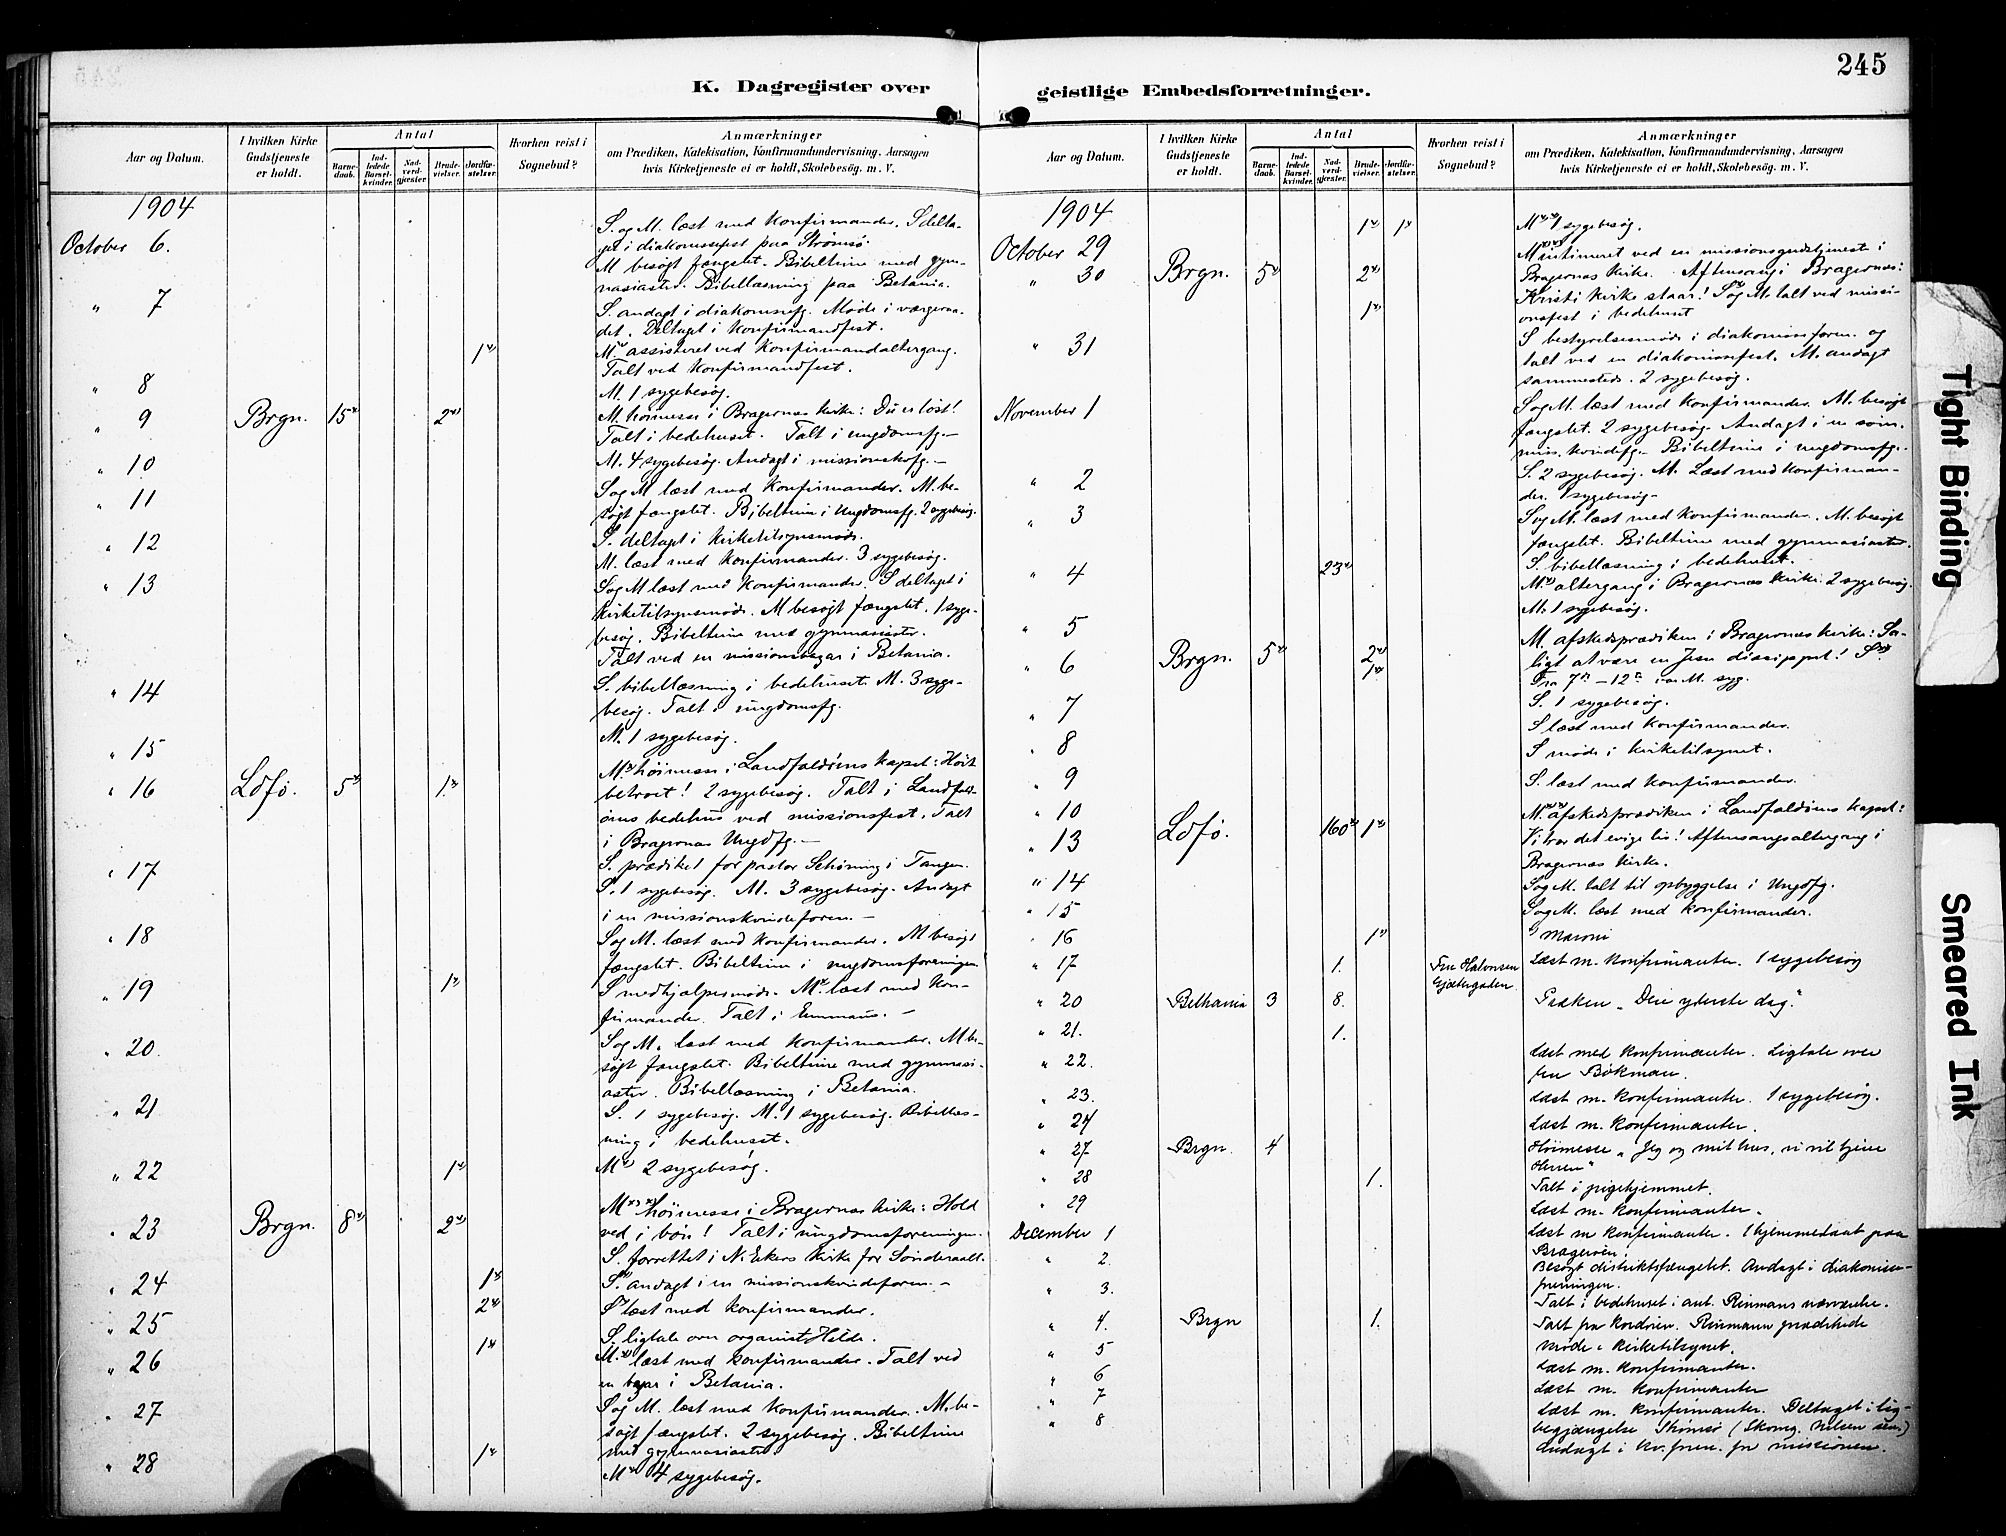 245
K. Dagregister over
geistlige Embedsforretninger.
Aar og Datum.
I hvilken Kirke Gudstjeneste er holdt.
Antal
Barnedaab.
Indledede Barselkvinder.
Nadverdgjester.
Brudevielser.
Jordfæstelser.
Hvorhen reist i Sognebud?
Anmærkninger
om Prædiken, Katekisation, Konfirmandundervisning, Aarsagen
hvis Kirketjeneste ei er holdt, Skolebesøg. m. V.
1904
S. og M. læst med Konfirmander. S delta-
October 6.
get i diakonissefest paa Strømsø.
M besøgt fængslet. Bibeltime med gym-
nasiaster. Bibellæsning paa Betania.
" 7
S. andagt i diakonissefg. Møde i værgeraa-
det. Deltaget i Konfirmandfest.
1
M. assisteret ved Konfirmandaltergang.
Talt ved Konfirmandfest.
" 8
M. 1 sygebesøg.
" 9 Brgn. 15 2 M. høimesse i Bragernæs kirke: Du er løst!
Talt i bedehuset. Talt i ungdomsfg.
" 10 M. 4 sygebesøg. Andagt i missionskofg.
" 11 S og M læst med Konfirmander. M. be-
søgt fængslet. Bibeltime i Ungdomsfg. 2 sygebesøg.
" 12 S. deltaget i Kirketilsynsmøde.
M. læst med Konfirmander. 3 sygebesøg.
" 13 S og M læst med Konfirmander. S deltaget i
Kirketilsynsmøde. M besøgt fængslet. 1 syge-
besøg. Bibeltime med gymnasiaster.
Talt ved en missionsbazar i Betania.
" 14 S. bibellæsning i bedehuset. M. 3 syge-
besøg. Talt i ungdomsfg.
" 15 M. 1 sygebesøg.
M. høimesse i Landfaldøens kapel: Høit
" 16 Ldfø. 5 1 betroet! 2 sygebesøg. Talt i Landfald-
øens bedehus ved missionsfest. Talt
i Bragernæs Ungdfg.
" 17 S. prædiket for pastor Schøning i Tangen.
S. 1 sygebesøg. M. 3 sygebesøg. Andagt
i en missionskvindeforen.
" 18 S og M. læst med Konfirmander. M besøgt
fængslet. Bibeltime i ungdomsforeningen.
" 19 1 S medhjælpermøde. M. læst med Kon-
firmander. Talt i Emmaus.
" 20. S og M. læst med Konfirmander. M be-
søgt fængslet. Bibeltime med gymnasi-
aster. Bibellæsning i Betania.
" 21 S. 1 sygebesøg. M. 1 sygebesøg. Bibellæs-
ning i bedehuset.
" 22 1 M 2 sygebesøg.
M høimesse i Bragernæs Kirke: Hold
" 23 Brgn. 8 2 ved i bøn! Talt i ungdomsforeningen.
S. forrettet i N. Ekers Kirke for Sønderaall.
" 24 1 S. andagt i en missionskvindeforen.
" 25 2 S læst med Konfirmander.
1 S. ligtale over organist Helde.
" 26 M. læst med Konfirmander. Talt ved
en bazar i Betania.
" 27 S og M. læst med Konfirmander. M. be-
søgt fængslet. 2 sygebesøg. Bibeltime
med gymnasiaster.
" 28 1 M 4 sygebesøg.
Aar og Datum.
I hvilken Kirke Gudstjeneste er holdt.
Antal
Barnedaab.
Indledede Barselkvinder.
Nadverdgjester.
Brudevielser.
Jordfæstelser.
Hvorhen reist i Sognebud?
Anmærkninger
om Prædiken, Katekisation, Konfirmandundervisning, Aarsagen
hvis Kirketjeneste ei er holdt, Skolebesøg. m. V.
1904
1 1 M 1 sygebesøg.
October 29
M intimeret ved en missionsgudstjeneste i
" 30 Brgn. 5 2 Bragernæs Kirke. Aftensang i Bragernæs:
Kristi Kirke staar! S og M. talt ved missi-
1 onsfest i bedehuset
" 31 S bestyrelsesmøde i diakonissforen. og
talt ved en diakonissefest. M. andagt
sammesteds. 2 sygebesøg.
November 1 S og M. læst med Konfirmander. M. besøgt
fængslet. 2 sygebesøg. Andagt i en søm.
miss. kvindefg. Bibeltime i ungdomsfg.
" 2 S. 2 sygebesøg. M. Læst med Konfirman-
der. 1 sygebesøg.
" 3 S og M. læst med Konfirmander. M. besøgt
fængslet. Bibeltime med gymnasiaster.
" 4 23 S. bibellæsning i bedehuset.
M altergang i Bragernæs Kirke. 2 sygebesøg.
" 5 M. 1 sygebesøg.
M. afskedsprædiken i Bragernæs kirke: Sa-
" 6 Brgn. 5 2 ligt at være en Jesu discippel! S
1 Fra 7 – 12 var M. syg.
" 7 S. 1 sygebesøg.
" 8 S læst med Konfirmander.
S møde i kirketilsynet.
" 9 S. læst med Konfirmander.
" 10 M afskedsprædiken i Landfaldøens kapel:
" 13 Ldfø. 160 1 Vi har det evige liv! Aftensangsaltergang i
Bragernæs Kirke.
" 14 S og M. talt til opbyggelse i Ungdfg.
" 15 S og M. læst med Konfirmander.
" 16 1
" 17 1. Fru Halvorsen Gjætergaden Læst m. Konfirmanter. 1 sygebesøg
" 20 Bethania 3 8. Præken "Den yderste dag."
" 21. 1.
" 22. Læst med Konfirmanter. Ligtale over
fru Bøkman.
" 23. Læst m. Konfirmanter. 1 sygebesøg.
" 24 Læst m. Konfirmanter.
" 27 Brgn. 4 Høimesse "Jeg og mit hus, vi vil tjene
Herren"
" 28 1. Talt i pigehjemmet.
" 29 Læst m. Konfirmanter.
December 1 Læst m Konfirmanter. 1 hjemmedaab paa
Bragerøen.
" 2. Besøgt distriktsfængslet. Andagt i diakonisse-
foreningen.
" 3. Talt i bedehuset i ant. Rinmans nærværelse.
" 4. Brgn 1. Talt fra Kordøren. Rinmann prædikede
" 5 Møde i Kirketilsynet.
" 6 Læst m. Konfirmanter.
" 7 Læst m. Konfirmanter
" 8 Læst m. Konfirmanter. Deltaget i lig-
begjængelse Strømsø (Skomg. Nilsen sen.)
Andagt i kv. foren. for missionen.
Tight Binding
Smeared Ink